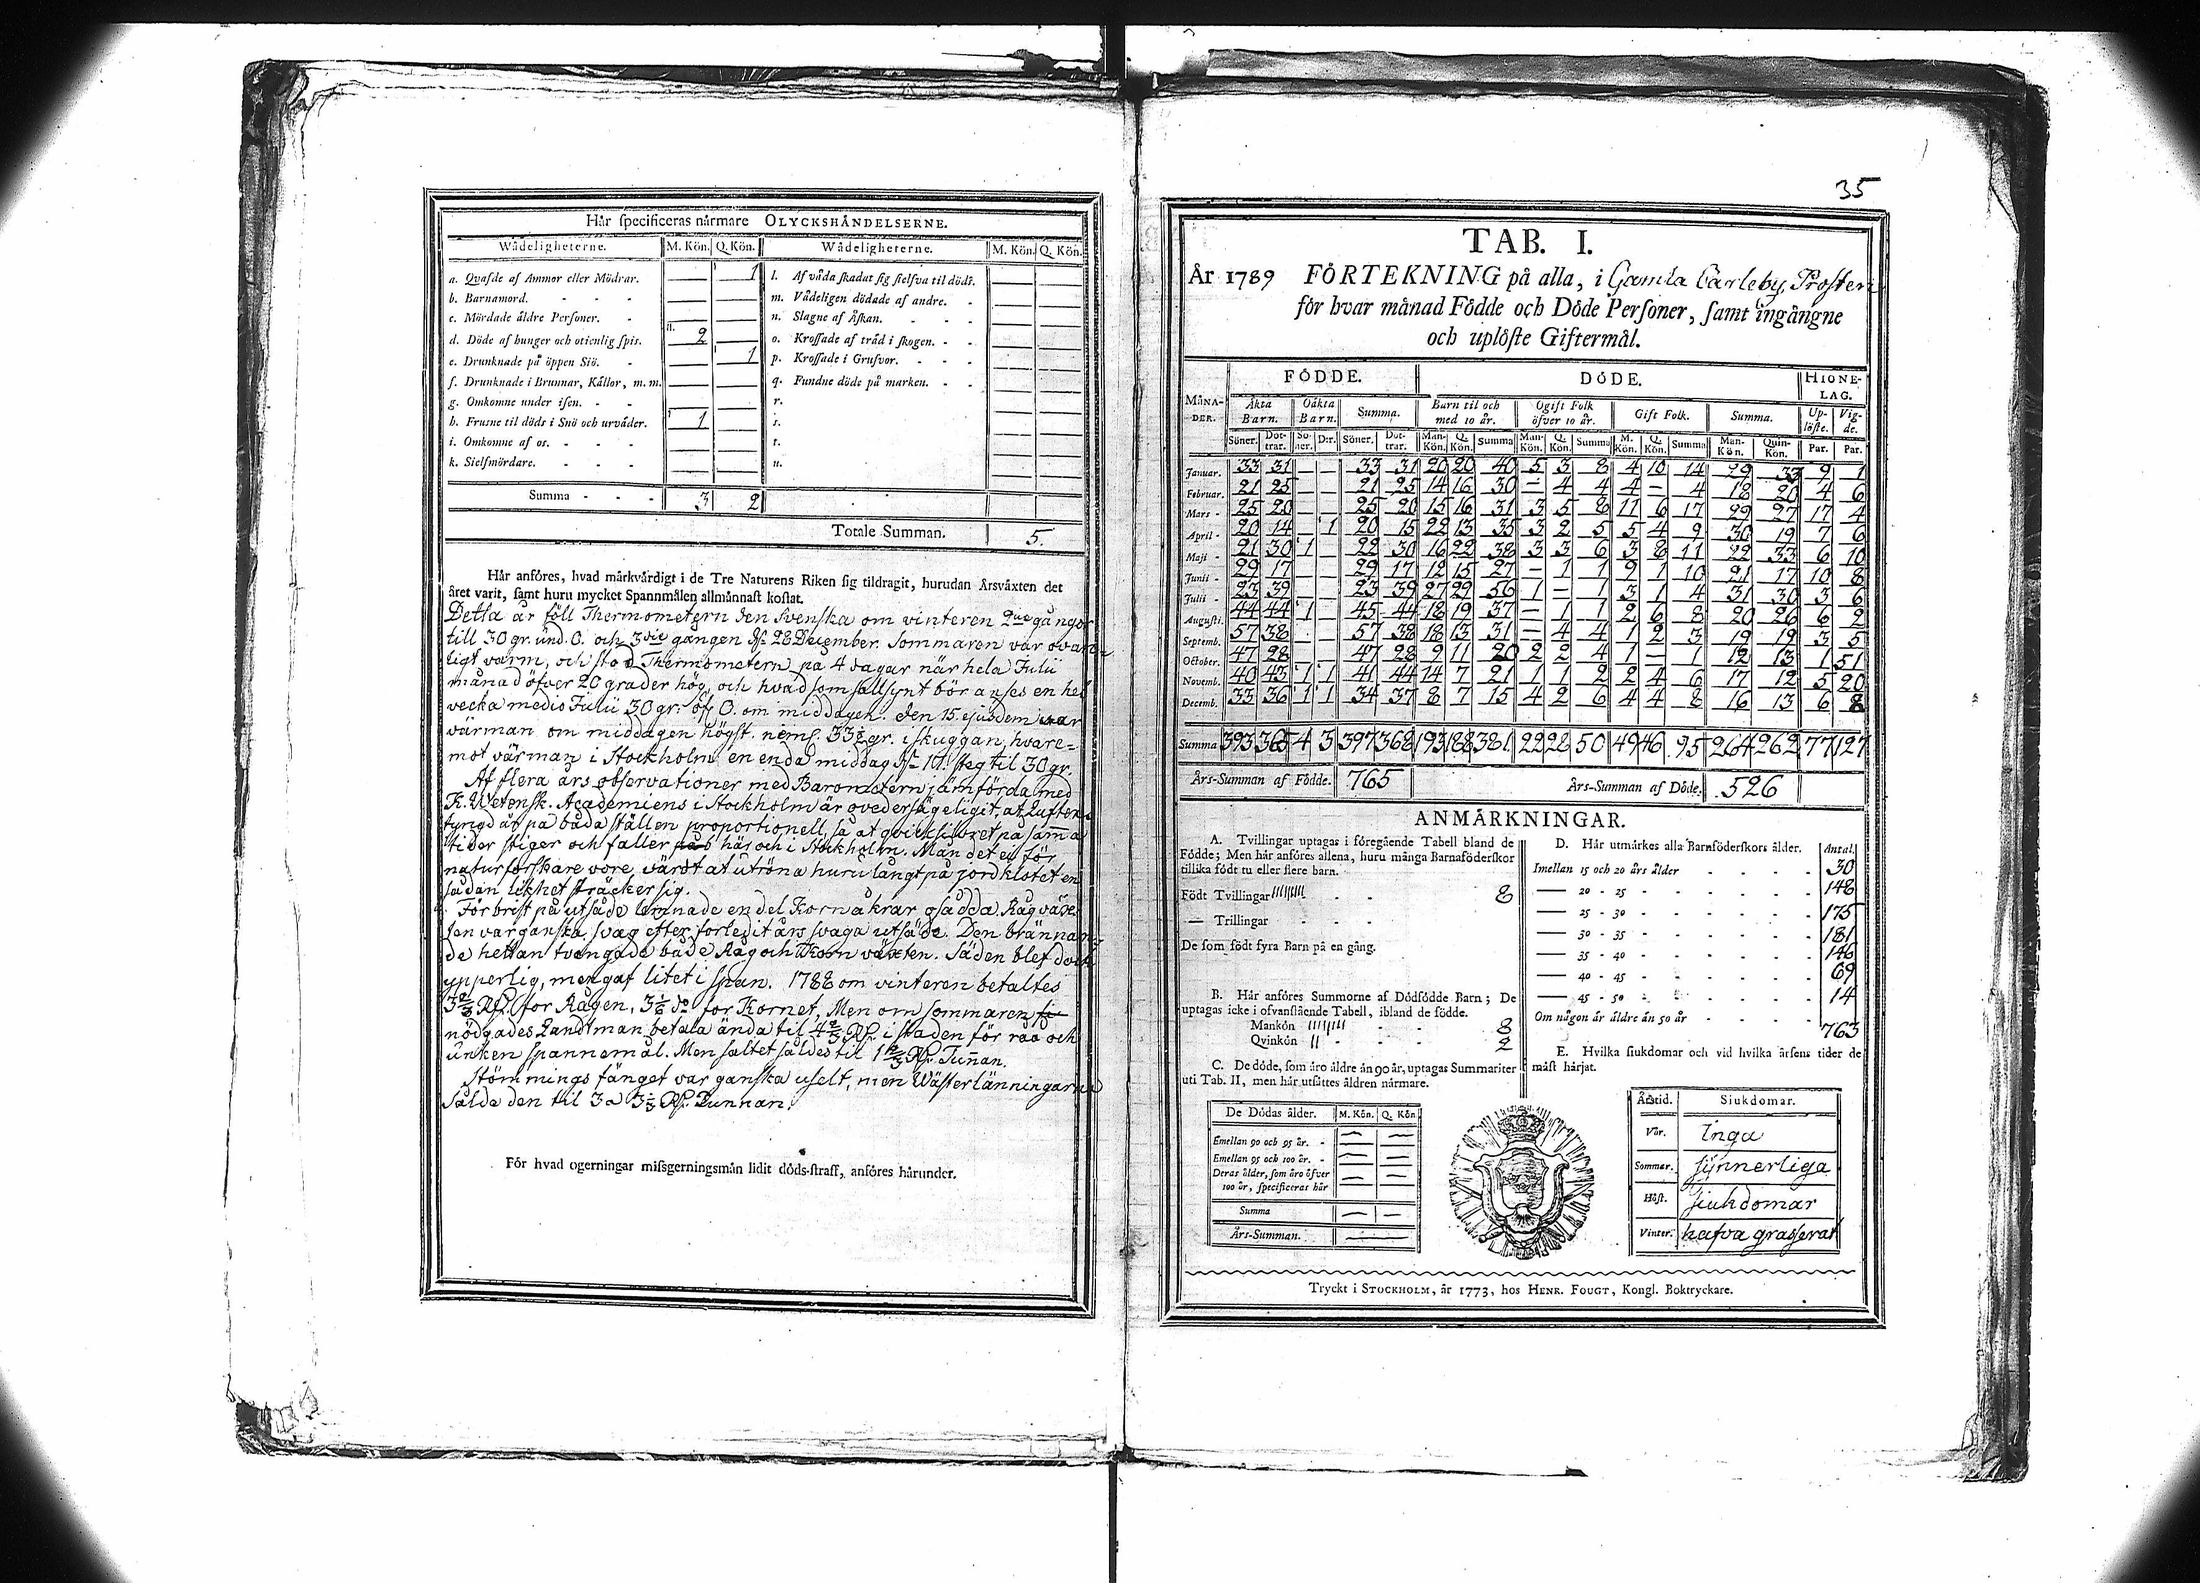 Här specificeras närmare OLYCKSHÄNDELSERNE.
Wådeligheterne. M. Kön. Q. Kön. Wådeligheterne. M. Kön. Q. Kön.
a. Qvafde af Ammor eller Mödrar. 1 l. Af våda skadat sig sielfva til döds.
b. Barnamord. m. Vådeligen dödade af andre.
c. Mördade äldre Personer. n. Slagne af Åskan.
d. Döde af hunger och otienlig spis. 2 o. Krossade af träd i skogen.
e. Drunknade på öppen Siö. 1 p. Krossade i Grufvor.
f. Drunknade i Brunnar, Källor, m. m. q. Fundne döde på marken.
g. Omkomne under isen. r.
h. Frusne til döds i Snö och urväder. 1 s.
i. Omkomne af os. t.
k. Sielfmördare. u.
Summa 3 2
Totale Summan. 5.
Här anföres, hvad märkvärdigt i de Tre Naturens Riken sig tildragit, hurudan Årsväxten det
året varit, samt huru mycket Spannmålen allmännast kostat.
Detta år föll Thermometern den Svenska om vinteren 2ne gångor
till 30 gr. und. 0. och 3die gången d. 28 December. Sommaren var ovan-
ligt varm, och stod Thermometern på 4 dagar när hela Julii
månad öfver 20 grader hög, och hvad som sällsynt bör anses en hel
vecka medio Julii 30 gr: öfv 0. om middagen. den 15 ejusdem var
värman om middagen högst. neml. 33½ gr. i skuggan, hvare=
mot värman i Stockholm en enda middag d. 17. steg til 30 gr.
Af flera års observationer med Barometern jämförda med
K. Vetensk. Academiens i Stockholm är ovedersägeligit, at Luftens
tyngd är på båda ställen proportionell, så at qvicksilvret på samma
tider stiger och faller här och i Stockholm. Man det ej för
naturforskare vore, värdt at utröna huru långt på jordklotet en
sådan likhet sträcker sig.
För brist på utsäde lemnade en del Kornåkrar osådda. Rågväx-
ten var ganska svag efter förledit års svaga utsäde. Den brännan-
de hettan tvangade både Råg och Korn växten. Säden blef dock
ypperlig, men gaf litet i span. 1788 om vinteren betaltes
3⅔ Rd. för Rågen, 3⅙ do för Kornet, Men om sommaren
nödgades Landtman betala ända til 4⅔ Rd. i staden för råa och
unken spannemål. Men saltet såldes til 1⅔ Rd. Tunnan.
Strömmings fänget var ganska uselt, men Wästerlänningarna
sålde den til 3 a 3⅓ Rd. Tunnan.
För hvad ogerningar missgerningsmän lidit döds-straff, anföres härunder.
35
TAB. I.
År 1789 FÖRTEKNING på alla, i Gamla Carleby Prosteri
för hvar månad Födde och Döde Personer, samt ingångne
och uplöste Giftermål.
MÅNA-DER. FÖDDE. DÖDE. HIONE-LAG.
Äkta Barn. Oäkta Barn. Summa. Barn til och med 10 år. Ogift Folk öfver 10 år. Gift Folk. Summa. Up-löste. Vig-de.
Söner. Dot-trar. Sö-ner. D:r. Söner. Dot-trar. Man-Kön. Q. Kön. Summa Man-Kön. Q. Kön. Summa M. Kön. Q. Kön. Summa Man-Kön. Quin-Kön. Par. Par.
Januar. 33 31 — — 33 31 20 20 40 5 3 8 4 10 14 29 33 9 1
Februar. 21 25 — — 21 25 14 16 30 — 4 4 4 — 4 18 20 4 6
Mars 25 20 — — 25 20 15 16 31 3 5 8 11 6 17 29 27 17 4
April 20 14 — 1 20 15 22 13 35 3 2 5 5 4 9 30 19 7 6
Maji 21 30 1 — 22 30 16 22 38 3 3 6 3 8 11 22 33 6 10
Junii 29 17 — — 29 17 12 15 27 — 1 1 9 1 10 21 17 10 8
Julii 23 39 — — 23 39 27 29 56 1 — 1 3 1 4 31 30 3 6
Augusti. 44 44 1 — 45 44 18 19 37 — 1 1 2 6 8 20 26 6 2
Septemb. 57 38 — — 57 38 18 13 31 — 4 4 1 2 3 19 19 3 5
October. 47 28 — — 47 28 9 11 20 2 2 4 1 — 1 12 13 1 51
Novemb. 40 43 1 1 41 44 14 7 21 1 1 2 2 4 6 17 12 5 20
Decemb. 33 36 1 1 34 37 8 7 15 4 2 6 4 4 8 16 13 6 8
Summa 393 365 4 3 397 368 193 188 381 22 28 50 49 46 95 264 262 77 127
Års-Summan af Födde. 765 Års-Summan af Döde. 526
ANMÄRKNINGAR.
A. Tvillingar uptagas i föregående Tabell bland de
Födde; Men här anföres allena, huru många Barnaföderskor
tillika födt tu eller flere barn.
Födt Tvillingar 8
— Trillingar
De som födt fyra Barn på en gång.
B. Här anföres Summorne af Dödfödde Barn; De
uptagas icke i ofvanstående Tabell, ibland de födde.
Mankön 8
Qvinkön 2
C. De döde, som äro äldre än 90 år, uptagas Summariter
uti Tab. II, men här utsättes åldren närmare.
De Dödas ålder. M. Kön. Q. Kön
Emellan 90 och 95 år. — —
Emellan 95 och 100 år. — —
Deras ålder, som äro öfver
100 år, specificeras här — —
Summa — —
Års-Summan. —
D. Här utmärkes alla Barnföderskors ålder. Antal.
Imellan 15 och 20 års ålder 30
— 20 - 25 148
— 25 - 30 175
— 30 - 35 181
— 35 - 40 146
— 40 - 45 69
— 45 - 50 14
Om någon är äldre än 50 år
763
E. Hvilka siukdomar och vid hvilka årsens tider de
mäst härjat.
Årstid. Siukdomar.
Vår. Inga
Sommar. synnerliga
Höst. siukdomar
Vinter. hafva grasserat
Tryckt i STOCKHOLM, år 1773, hos HENR. FOUGT, Kongl. Boktryckare.